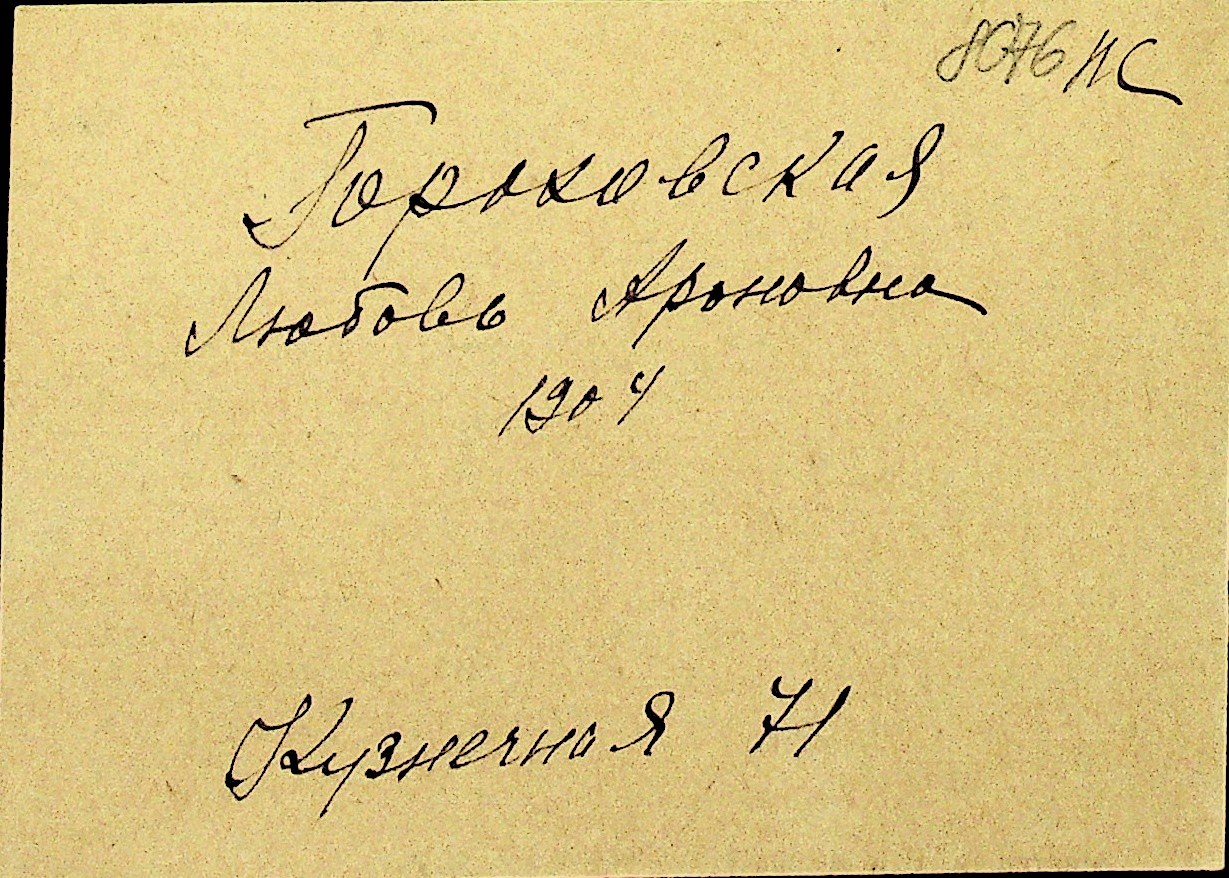 8076 НС
Гороховская
Любовь Ароновна
1904
Кузнечная 71